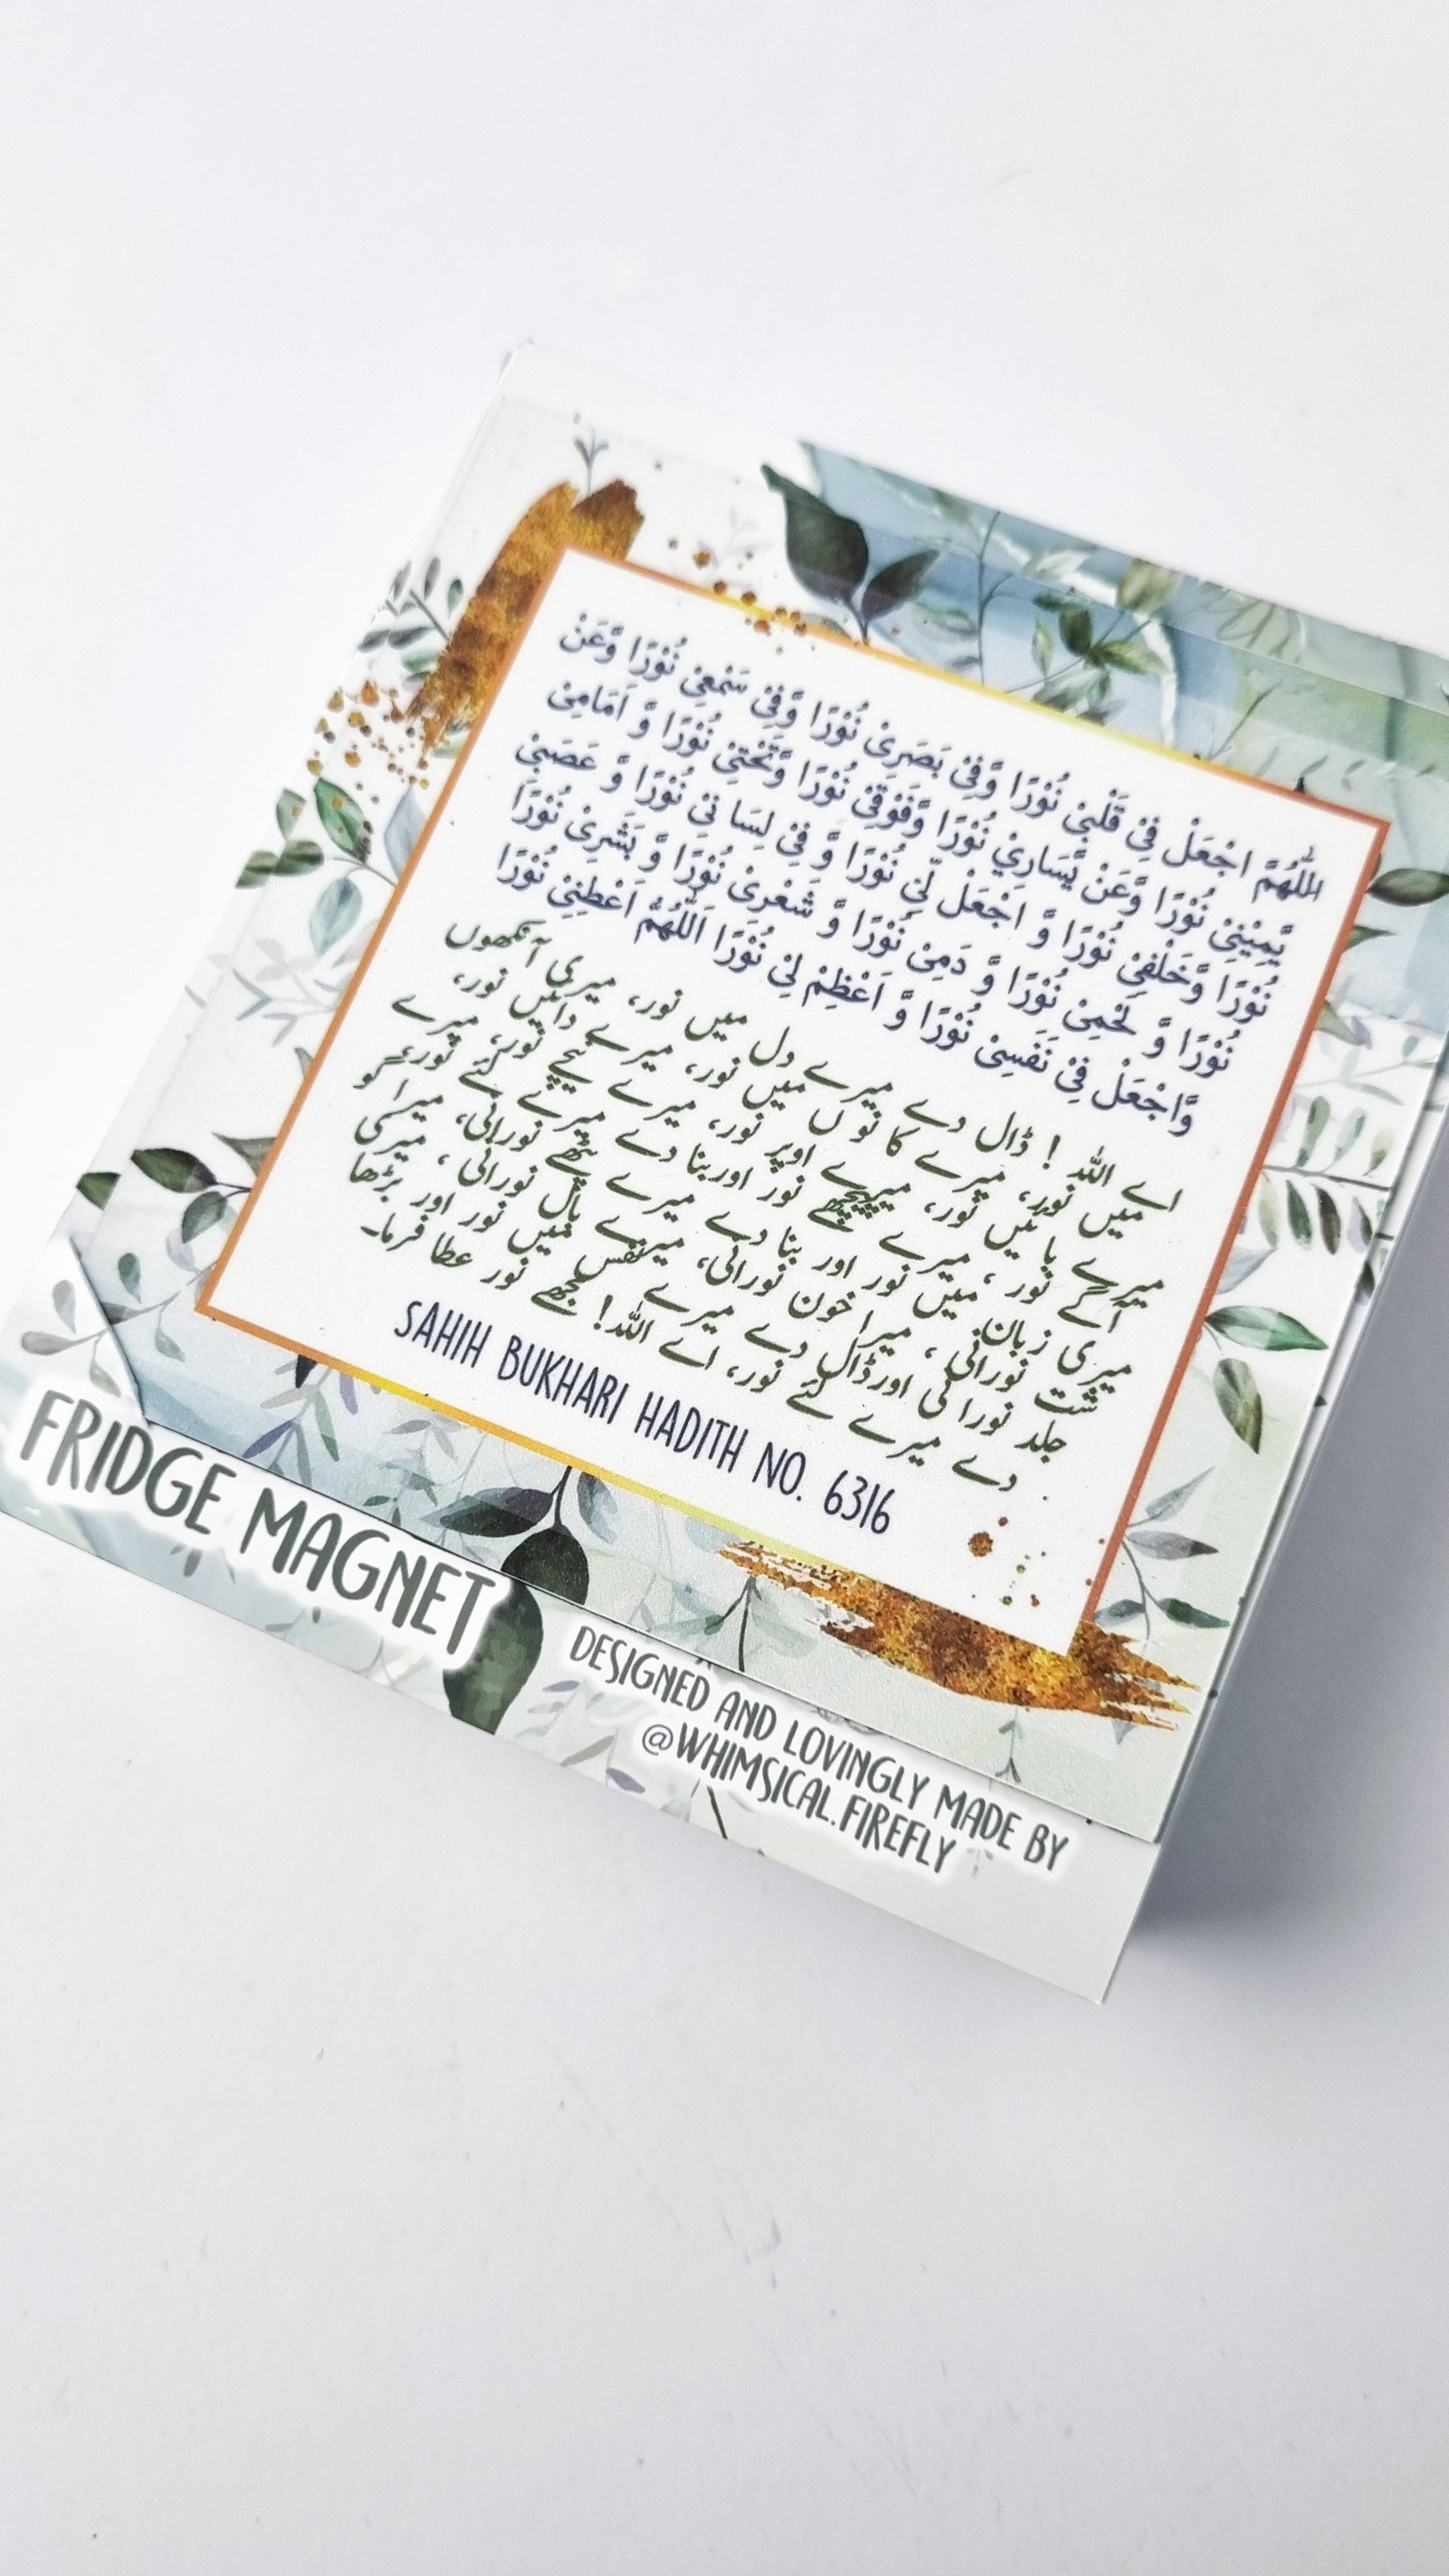 اَللّٰهُمَّ اجْعَلْ فِيْ قَلْبِيْ نُوْرًا وَّفِيْ بَصَرِيْ نُوْرًا وَّفِيْ سَمْعِيْ نُوْرًا وَّعَنْ
يَّمِيْنِيْ نُوْرًا وَّعَنْ يَّسَارِيْ نُوْرًا وَّفَوْقِيْ نُوْرًا وَّتَحْتِيْ نُوْرًا وَّ اَمَامِيْ
نُوْرًا وَّخَلْفِيْ نُوْرًا وَّ اجْعَلْ لِّيْ نُوْرًا وَّ فِيْ لِسَا نِيْ نُوْرًا وَّ عَصَبِيْ
نُوْرًا وَّ لَحْمِيْ نُوْرًا وَّ دَمِيْ نُوْرًا وَّ شَعْرِيْ نُوْرًا وَّ بَشَرِيْ نُوْرًا
وَّاجْعَلْ فِيْ نَفْسِيْ نُوْرًا وَّ اَعْظِمْ لِيْ نُوْرًا اَللّٰهُمَّ اَعْطِنِيْ نُوْرًا
اے اللہ ! ڈال دے میرے دل میں نور، میری آنکھوں
میں نور، میرے کا نو ں میں نور، میرے دائیں نور،
میرے بائیں نور، میرے اوپر نور، میرے نیچے نور، میرے
آگے نور ، میرے پیچھے نور اور بنا دے میرے لئے نور،
میری زبان میں نور اور بنا دے میرے پٹھے نورانی، میرا گو
شت نورانی ، میرا خون نورانی، میرے بال نورانی ، میری
جلد نورا نی اور ڈال دے میرے نفس میں نور اور بڑھا
دے میرے لئے نور، اے اللہ! مجھے نور عطا فرما۔
SAHIH BUKHARI HADITH NO. 6316
FRIDGE MAGNET
DESIGNED AND LOVINGLY MADE BY
@WHIMSICAL.FIREFLY